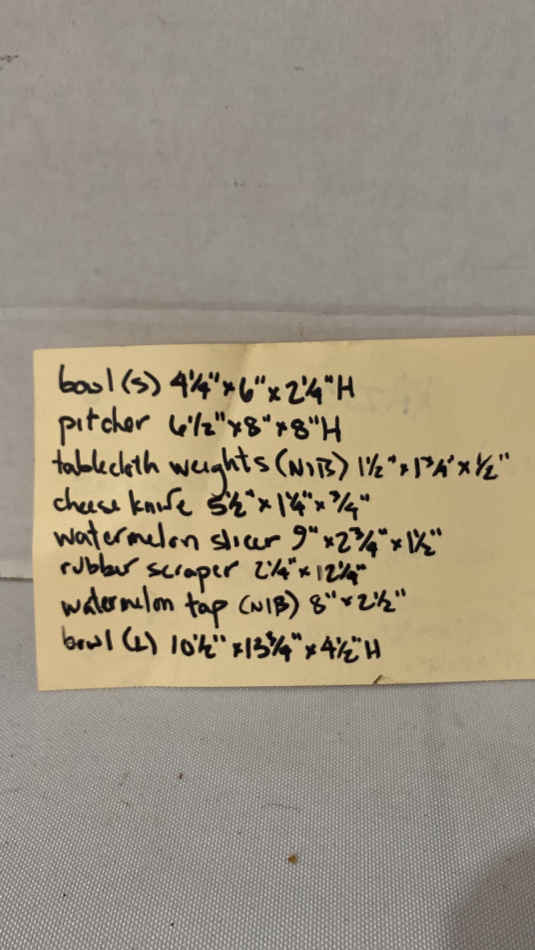 bowl (S) 4¼" x 6" x 2¼" H
pitcher 6½" x 8" x 8" H
tablecloth weights (NIB) 1½" x 1¾" x ½"
cheese knife 5½" x 1¼" x ¾"
watermelon slicer 9" x 2¾" x 1½"
rubber scraper 2¼" x 12¼"
watermelon tap (NIB) 8" x 2½"
bowl (L) 10½" x 13¾" x 4½" H